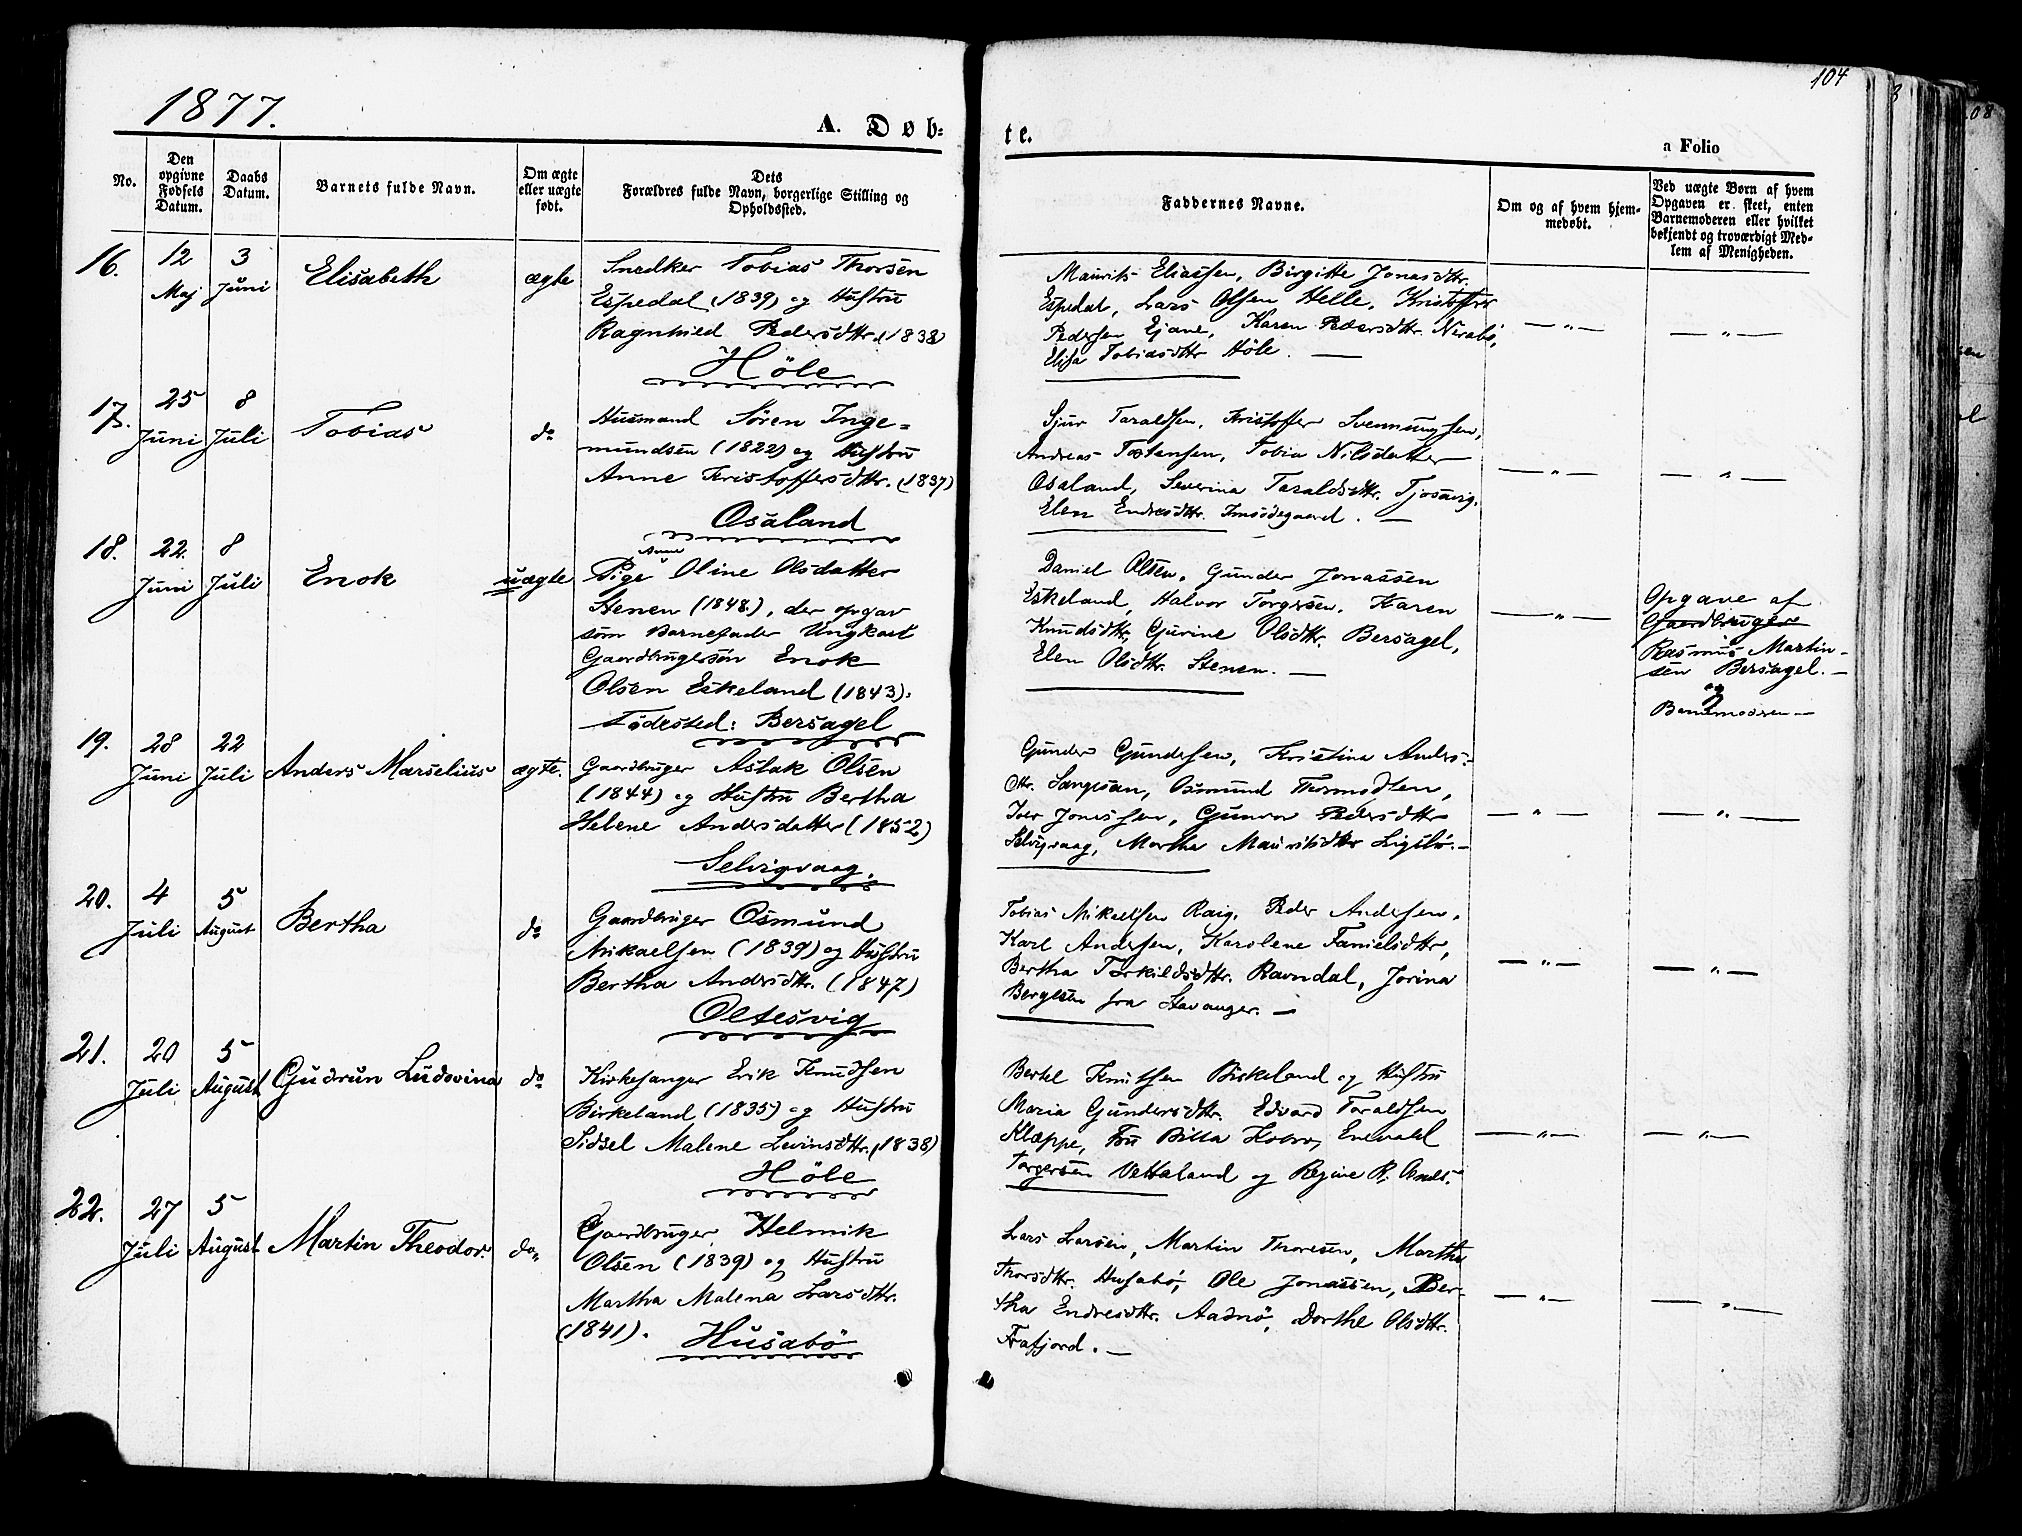 104
1877.
A. Døb-
te.
a Folio
No.
Den opgivne Fødsels Datum.
Daabs Datum.
Barnets fulde Navn.
Om ægte eller uægte født.
Dets Forældres fulde Navn, borgerlige Stilling og Opholdssted.
Faddernes Navne.
Om og af hvem hjemmedøbt.
Ved uægte Børn af hvem Opgaven er skeet, enten Barnemoderen eller hvilket bekjendt og troværdigt Medlem af Menigheden.
16.
12 Maj
3 Juni
Elisabeth
ægte
Snedker Tobias Thorsen
Espedal (1839) og Hustru
Ragnhild Pedersdttr. (1838)
Høle
Maurits Eliassen, Birgitte Jonasdttr.
Espedal, Lars Olsen Helle, Kristoffer
Pedersen Ejane, Karen Pedersdttr. Nerabø,
Elisa Tobiasdttr Høle. —
— " —
— " —
17.
25 Juni
8 Juli
Tobias
do
Husmand Sören Inge=
mundsen (1822) og Hustru
Anne Kristoffersdttr. (1837)
Osaland
Sjur Taraldsen, Kristoffer Svenmungsen,
Andreas Tostensen, Tobia Nilsdatter
Osaland, Severina Taraldsdttr. Tjosavig,
Elen Endresdttr. Imsodegaard. —
— " —
— " —
18.
22. Juni
8 Juli
Enok
uægte
Anne
Pige Oline Olsdatter
Stenen (1848.), der opgav
som Barnefader Ungkarl
Gaardbrugersøn Enok
Olsen Eskeland (1843).
Födested: Bersagel
Daniel Olsen, Gunder Jonassen
Eskeland, Halvor Torgersen, Karen
Knudsdttr, Gurine Olsdttr. Bersagel,
Elen Olsdttr. Stenen. —
— " —
Opgave af
Gaardbruger
Rasmus Martin-
sen Bersagel. —
og
Barnemoderen —
19.
28 Juni
22 Juli
Anders Marselius
ægte.
Gaardbruger Aslak Olsen
(1844) og Hustru Bertha
Helene Andersdatter (1852)
Selvigvaag.
Gunder Gundersen, Kristina Anders-
dttr. Sangesan, Osmund Thormodsen,
Iver Jonassen, Gunvor Pedersdttr
Selvigvaag, Martha Mauritsdttr Ligelö. —
— " —
— " —
20.
4 Juli
5 August
Bertha
do
Gaardbruger Osmund
Mikaelsen (1839) og Hustru
Bertha Andersdttr. (1847)
Oltesvig
Tobias Mikaelsen Raig, Peder Andersen,
Karl Andersen, Karolene Tanielsdttr,
Bertha Torkildsdttr. Ravndal, Jorina
Bergesen fra Stavanger. —
— " —
— " —
21.
20 Juli
5 August
Gudrun Ludovina
do
Kirkesanger Erik Knudsen
Birkeland (1835) og Hustru
Sidsel Malene Levinsdttr. (1838)
Höle
Bertel Knutsen Birkeland og Hustru
Maria Gundersdttr. Edvard Taraldsen
Kleppe, Fru Billa Holm, Enevald
Torgersen Vettaland og Regine R.
— " —
— " —
22.
27 Juli
5 August
Martin Theodor.
do
Gaardbruger Helmik
Olsen (1839) og Hustru
Martha Malena Larsdttr.
(1841).
Husabö
Lars Larsen, Martin Thoresen, Martha
Thorsdttr. Husabø, Ole Jonassen, Ber-
tha Endresdttr. Aadnö, Dorthe Olsdttr.
Frafjord. —
— " —
— " —